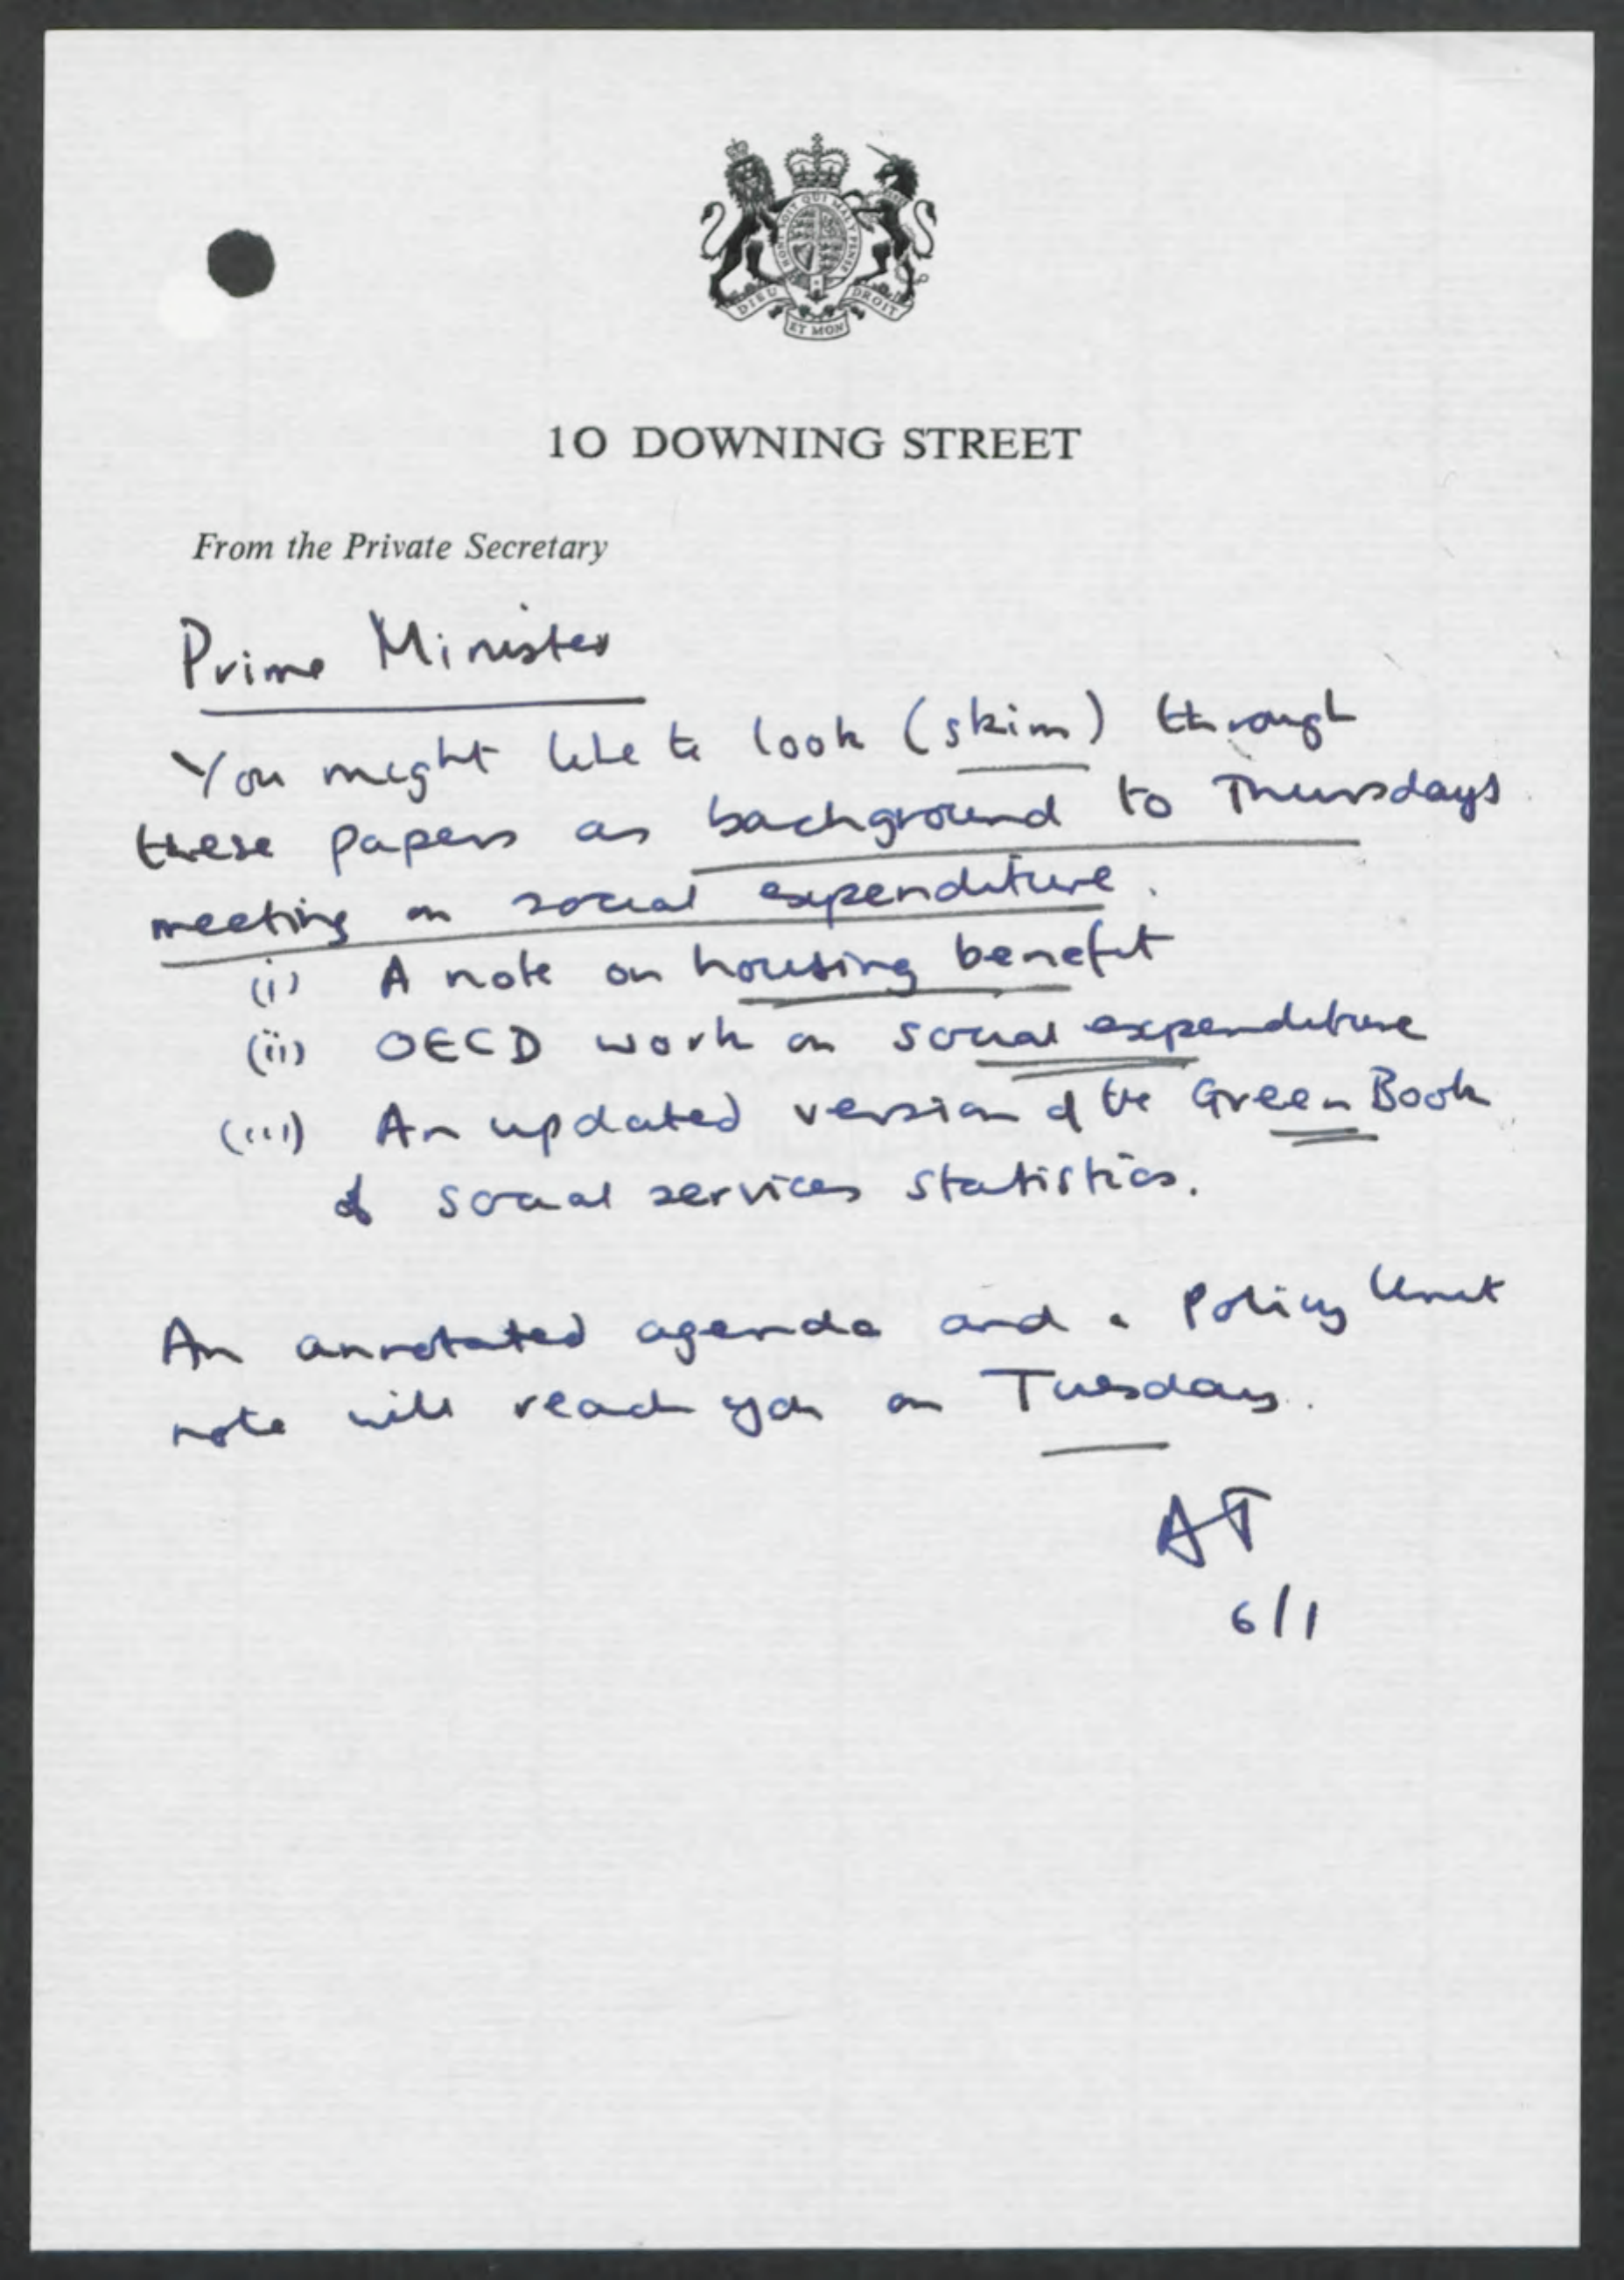 HONI SOIT QUI MAL Y PENSE
DIEU ET MON DROIT
10 DOWNING STREET
From the Private Secretary
Prime Minister
You might like to look (skim) through
these papers as background to Thursdays
meeting on social expenditure.
(i) A note on housing benefit
(ii) OECD work on social expenditure
(iii) An updated version of the Green Book
of social services statistics.
An annotated agenda and a Policy Unit
note will reach you on Tuesday.
AT
6/1